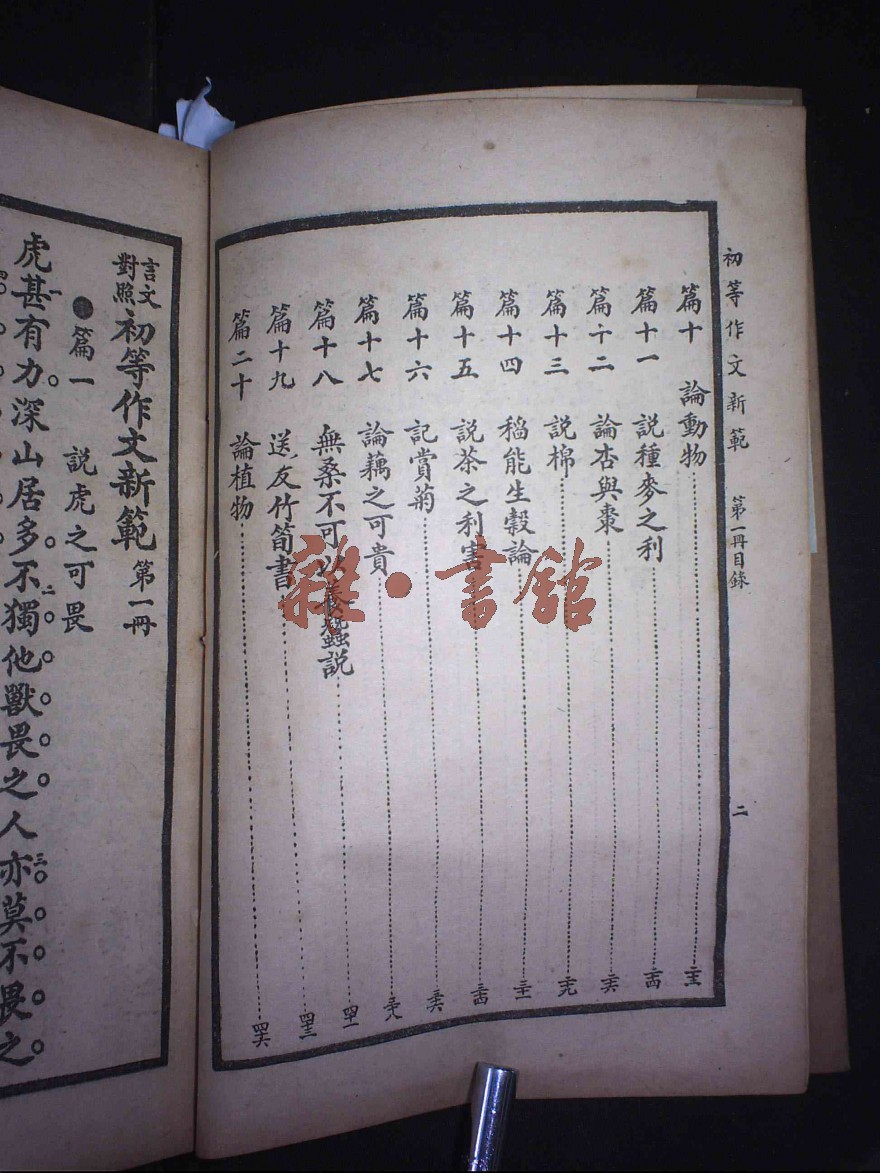 初等作文新範 第一冊目錄 二
篇十 論動物
篇十一 說種麥之利 二十四
篇十二 論杏與棗 二十六
篇十三 說棉 二十九
篇十四 稻能生穀論
篇十五 說茶之利害 三十四
篇十六 記賞菊 三十六
篇十七 論藕之可貴 三十八
篇十八 無桑不可以養蠶說 四十一
篇十九 送友竹筍書 四十三
篇二十 論植物 四十六
言文對照 初等作文新範 第一冊
篇一 說虎之可畏
虎甚有力。深山居多。不獨他獸畏之。人亦莫不畏之。
雜·書館